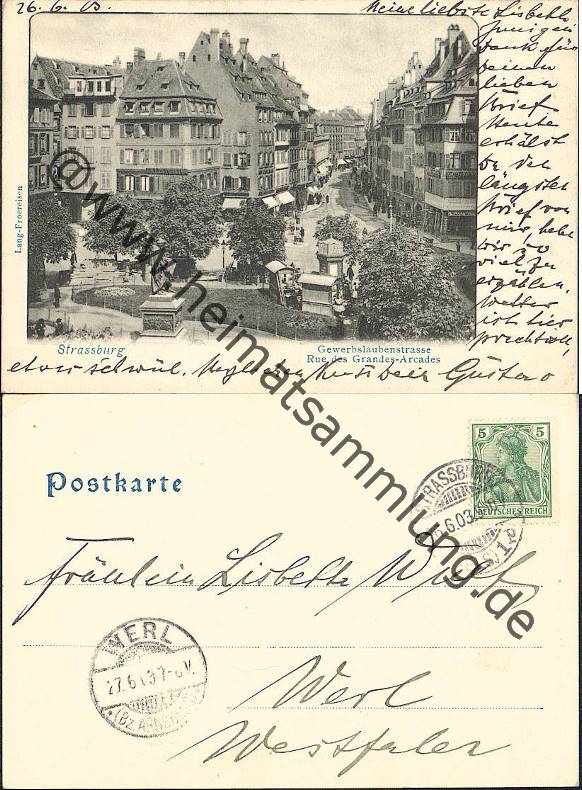 26.6.03.
Meine liebste Lisbeth
Innigen
Dank für
deinen
lieben
Brief
Heute
erhälst
Du den
längsten
Brief von
mir, habe
Dir so
viel zu
erzählen.
Wetter
ist hier
prachtvoll,
etwas schwül.
Kuss Dein Gustav
Lang-Froereisen
Strassburg
Gewerbslaubenstrasse
Rue des Grandes-Arcades
@www.heimatsammlung.de
Postkarte
5 5
DEUTSCHES REICH
STRASSBURG
6.03.
Fräulein Lisbeth
WERL
27.6.03 7-8V.
* (Bz. ARNSBERG)
Werl
Westfalen